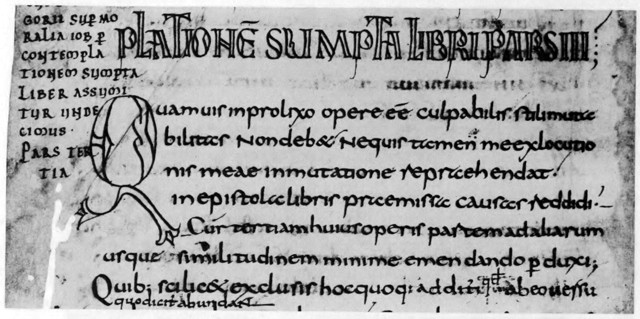 GORII SUP MO
RALIA IOB P
CONTEMPLA
TIONEM SUMPTA
LIBER ASSUMI
TUR UNDE
CIMUS·
PARS TER
TIA
PLATIONĒ SUMPTA LIBRI PARS III;
Quamuis inprolixo opere eē culpabilis stili muta
bilitas Non deb& Nequis tamen me exlocutio
nis meae inmutatione reprehendat·
in epistola libris premissa causas reddidi·
Cur tertiam huius operis partem ad aliarum
usque similitudinem minime emendando p duxi;
Quib; scilic& exclusis hoc quoq; additur